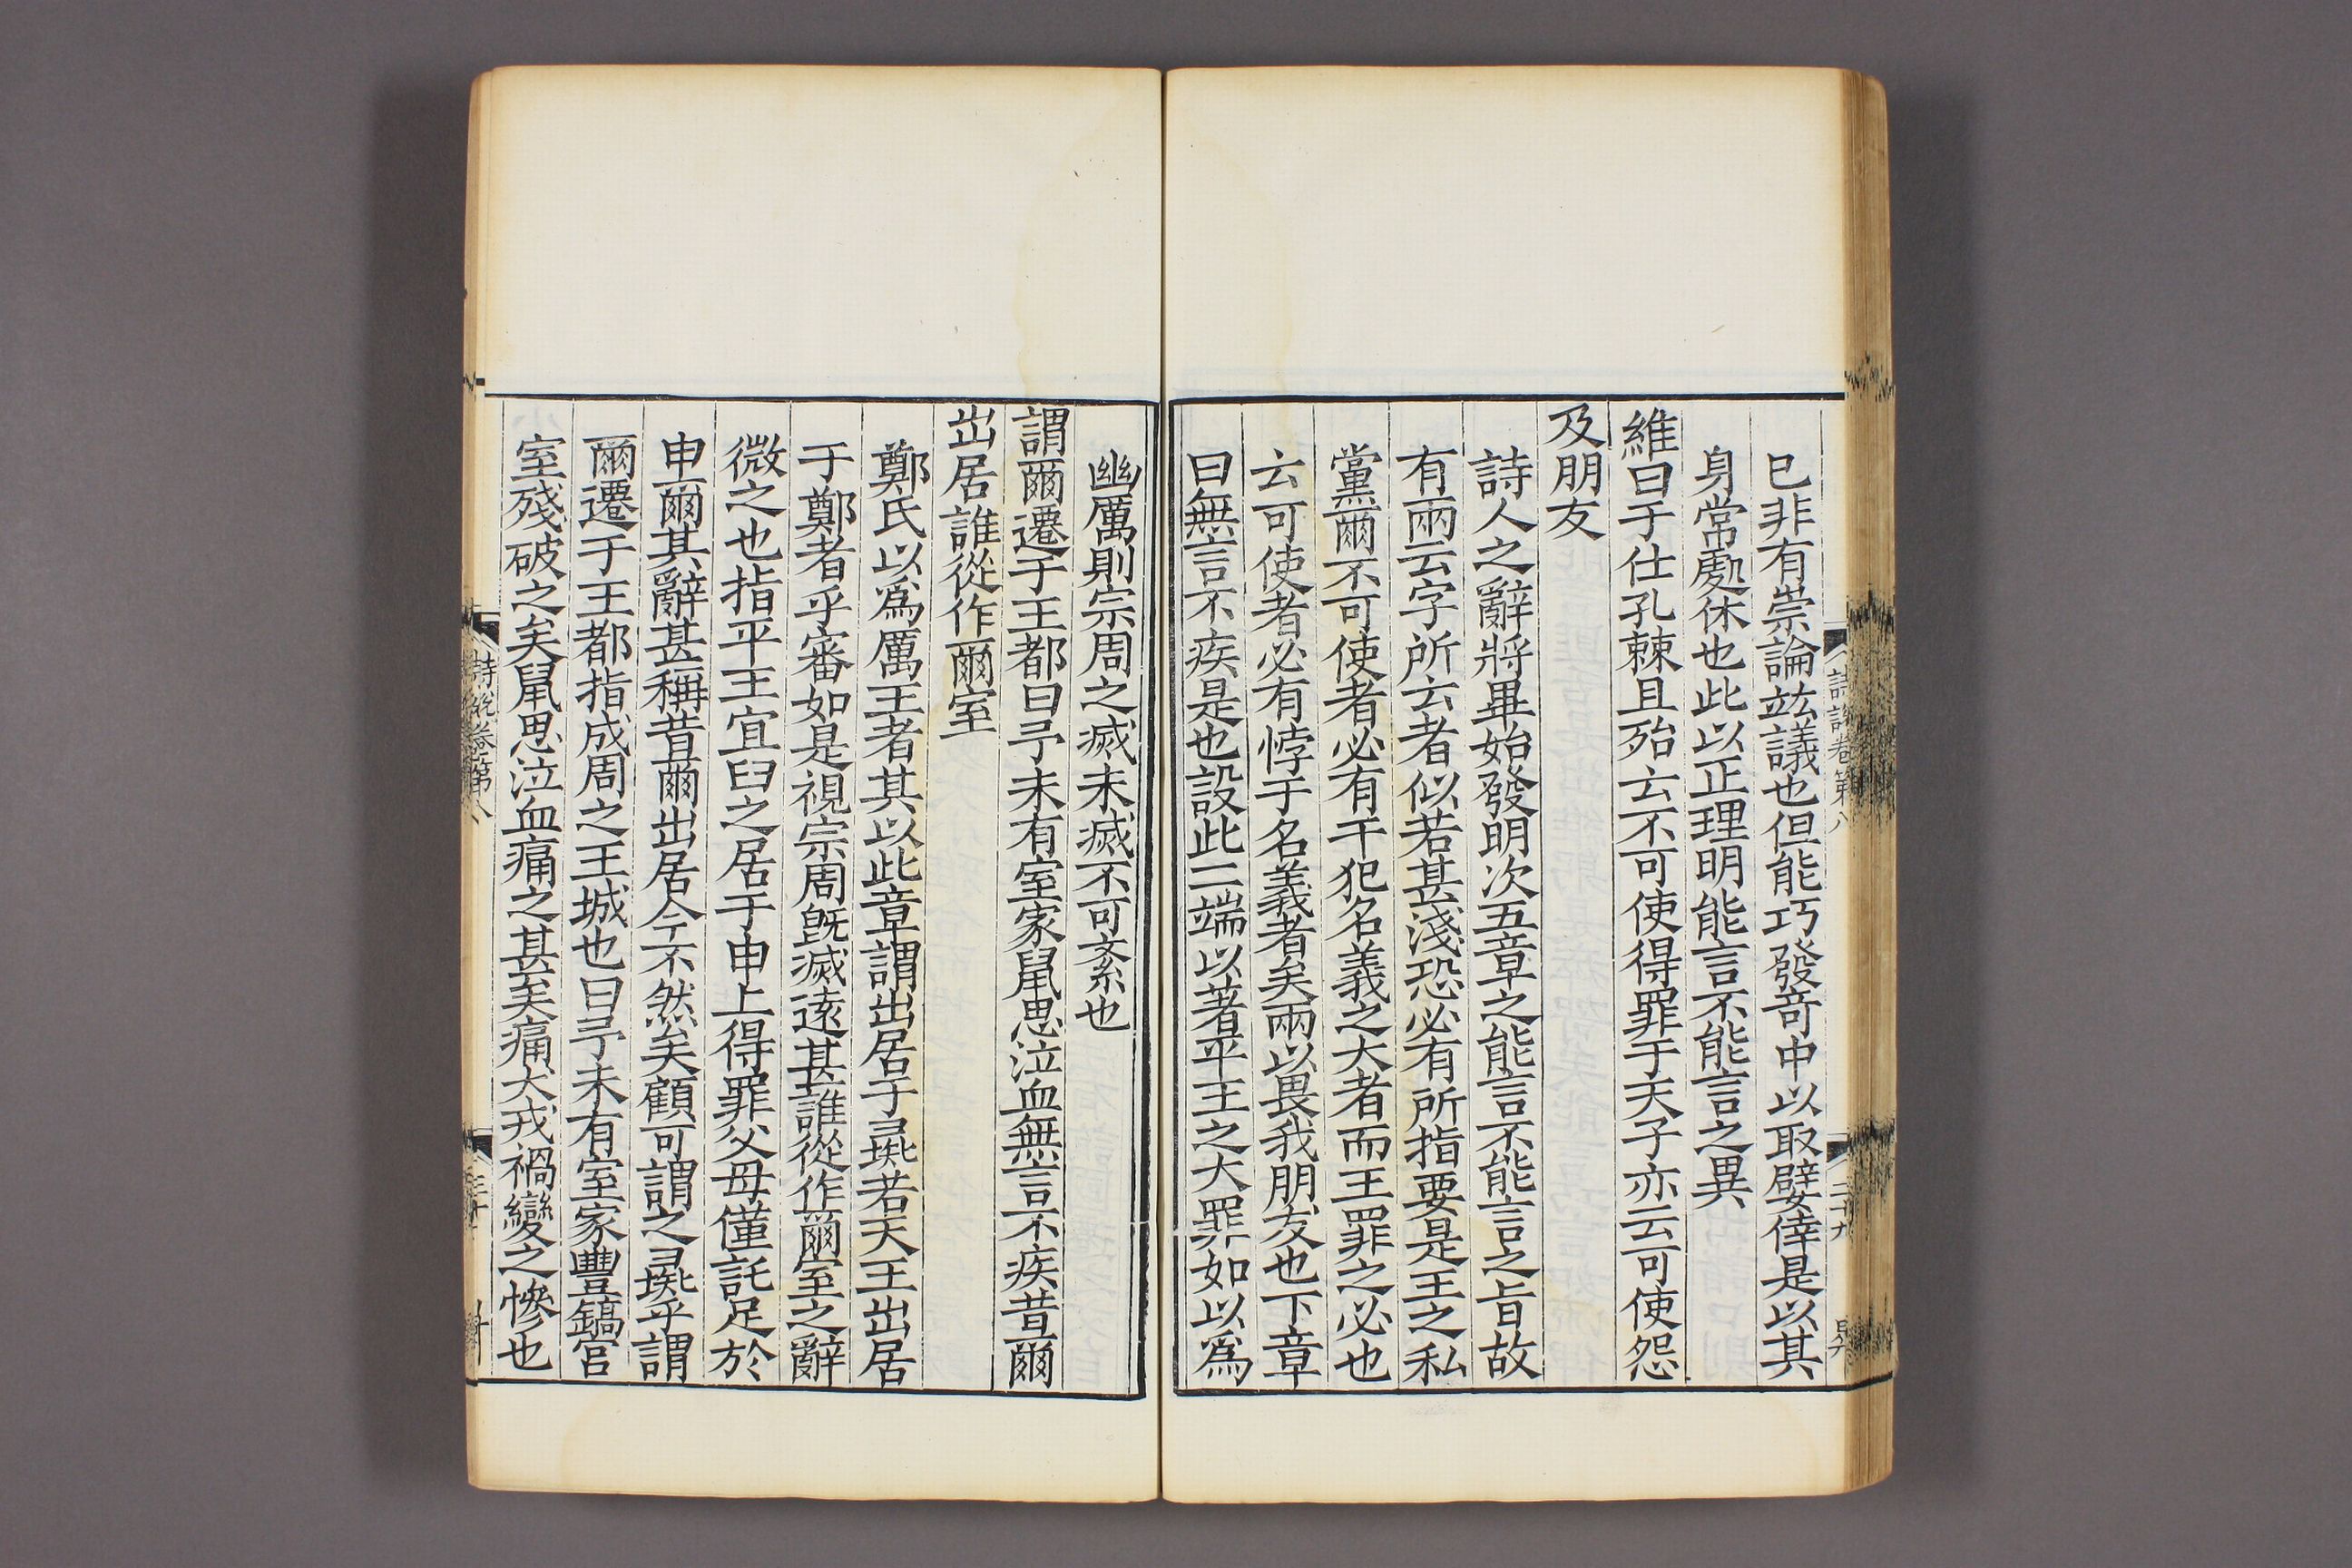 已非有崇論竑議也但能巧發竒中以取嬖倖是以其
身常處休也此以正理明能言不能言之異
維曰于仕孔棘且殆云不可使得罪于天子亦云可使怨
及朋友
詩人之辭將畢始發明次五章之能言不能言之旨故
有兩云字所云者似若甚淺恐必有所指要是王之私
黨爾不可使者必有干犯名義之大者而王罪之必也
云可使者必有悖于名義者矣兩以畏我朋友也下章
曰無言不疾是也設此二端以著平王之大罪如以爲
幽厲則宗周之㓕未㓕不可紊也
謂爾遷于王都曰予未有室家鼠思泣血無言不疾昔爾
出居誰從作爾室
鄭氏以爲厲王者其以此章謂出居于彘若天王出居
于鄭者乎審如是視宗周旣滅遠甚誰從作爾室之辭
微之也指平王宜臼之居于申上得罪父母僅託足於
申爾其辭甚稱昔爾出居今不然矣顧可謂之彘乎謂
爾遷于王都指成周之王城也曰予未有室家豐鎬宫
室殘破之矣鼠思泣血痛之甚矣痛犬戎禍變之慘也
詩說卷第八
二十九
詩說卷第八
三十